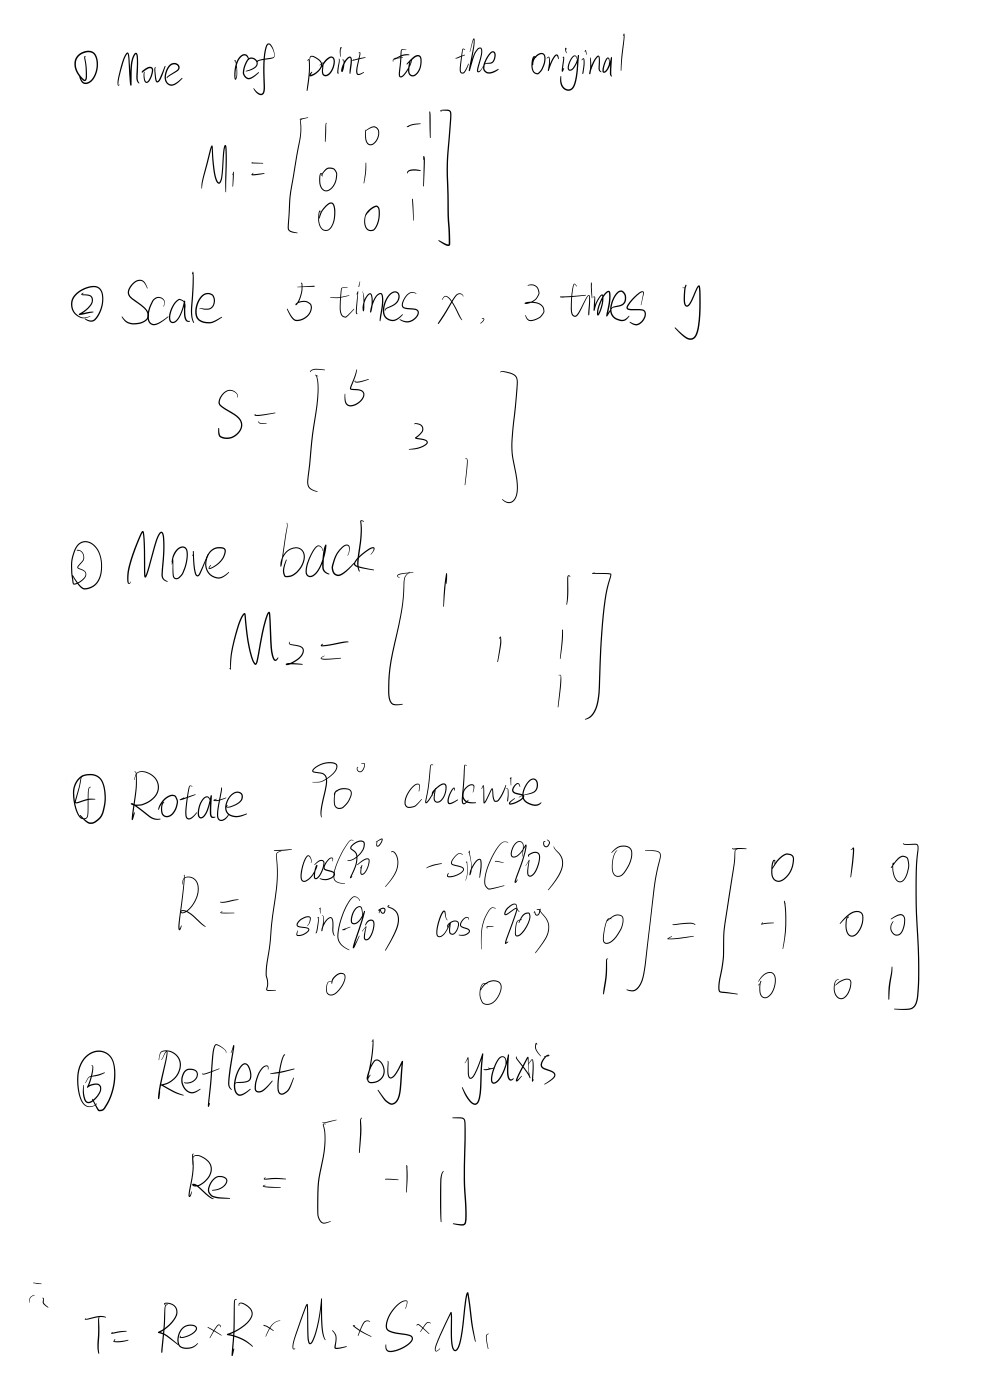 ① Move ref point to the original
M₁ = [ 1 0 -1
0 1 -1
0 0 1 ]
② Scale 5 times x, 3 times y
S = [ 5
3
1 ]
③ Move back
M₂ = [ 1 1
1 1
1 ]
④ Rotate 90° clockwise
R = [ cos(90°) -sin(-90°) 0
sin(-90°) cos(-90°) 0
0 0 1 ] = [ 0 1 0
-1 0 0
0 0 1 ]
⑤ Reflect by y-axis
Re = [ 1
-1
1 ]
T = Re × R × M₂ × S × M₁